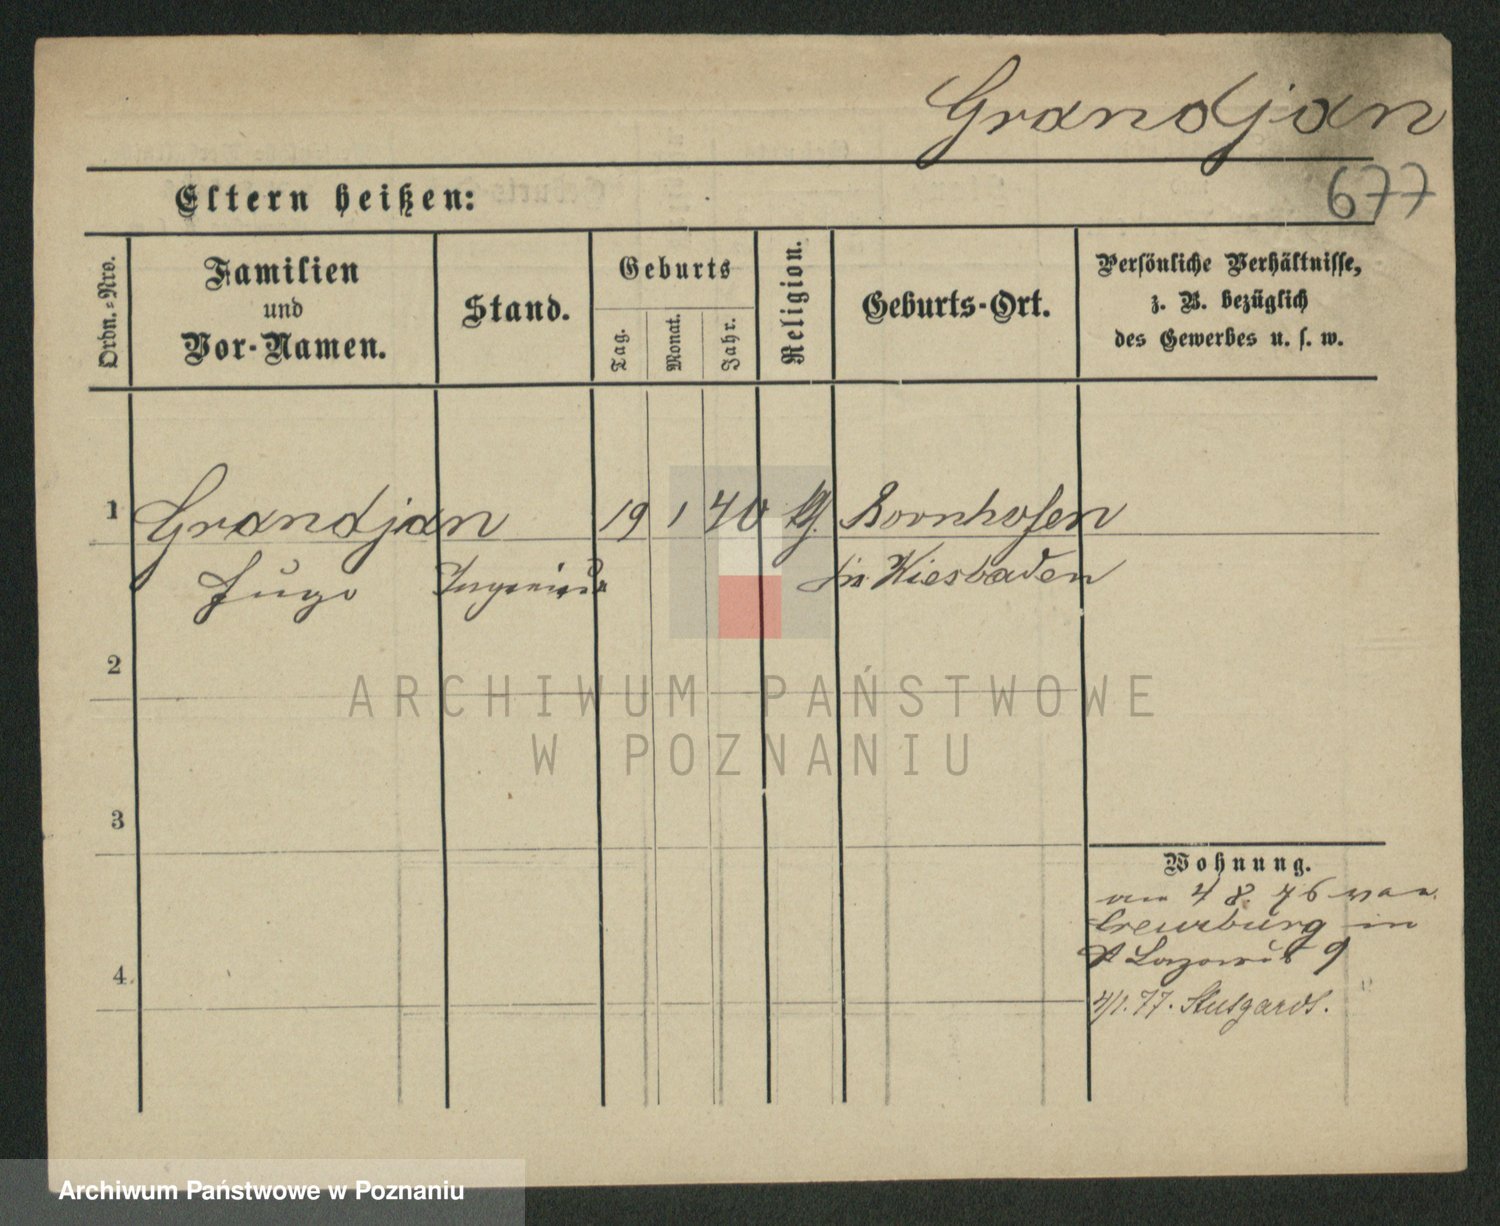 Grandjan
677
Eltern heißen:
Ordn.-Nro.
Familien
und
Vor-Namen.
Stand.
Geburts
Tag.
Monat.
Jahr.
Religion.
Geburts-Ort.
Persönliche Verhältnisse,
z. B. bezüglich
des Gewerbes u. s. w.
1 Grandjan 19 1 40 Bornhofen
Hugo Ingenieur Wiesbaden
2
3
4.
Wohnung.
am 4 8. 76 von
Creuzburg in
St Lazarus 9
77. Stutgardt.
ARCHIWUM PAŃSTWOWE
W POZNANIU
Archiwum Państwowe w Poznaniu